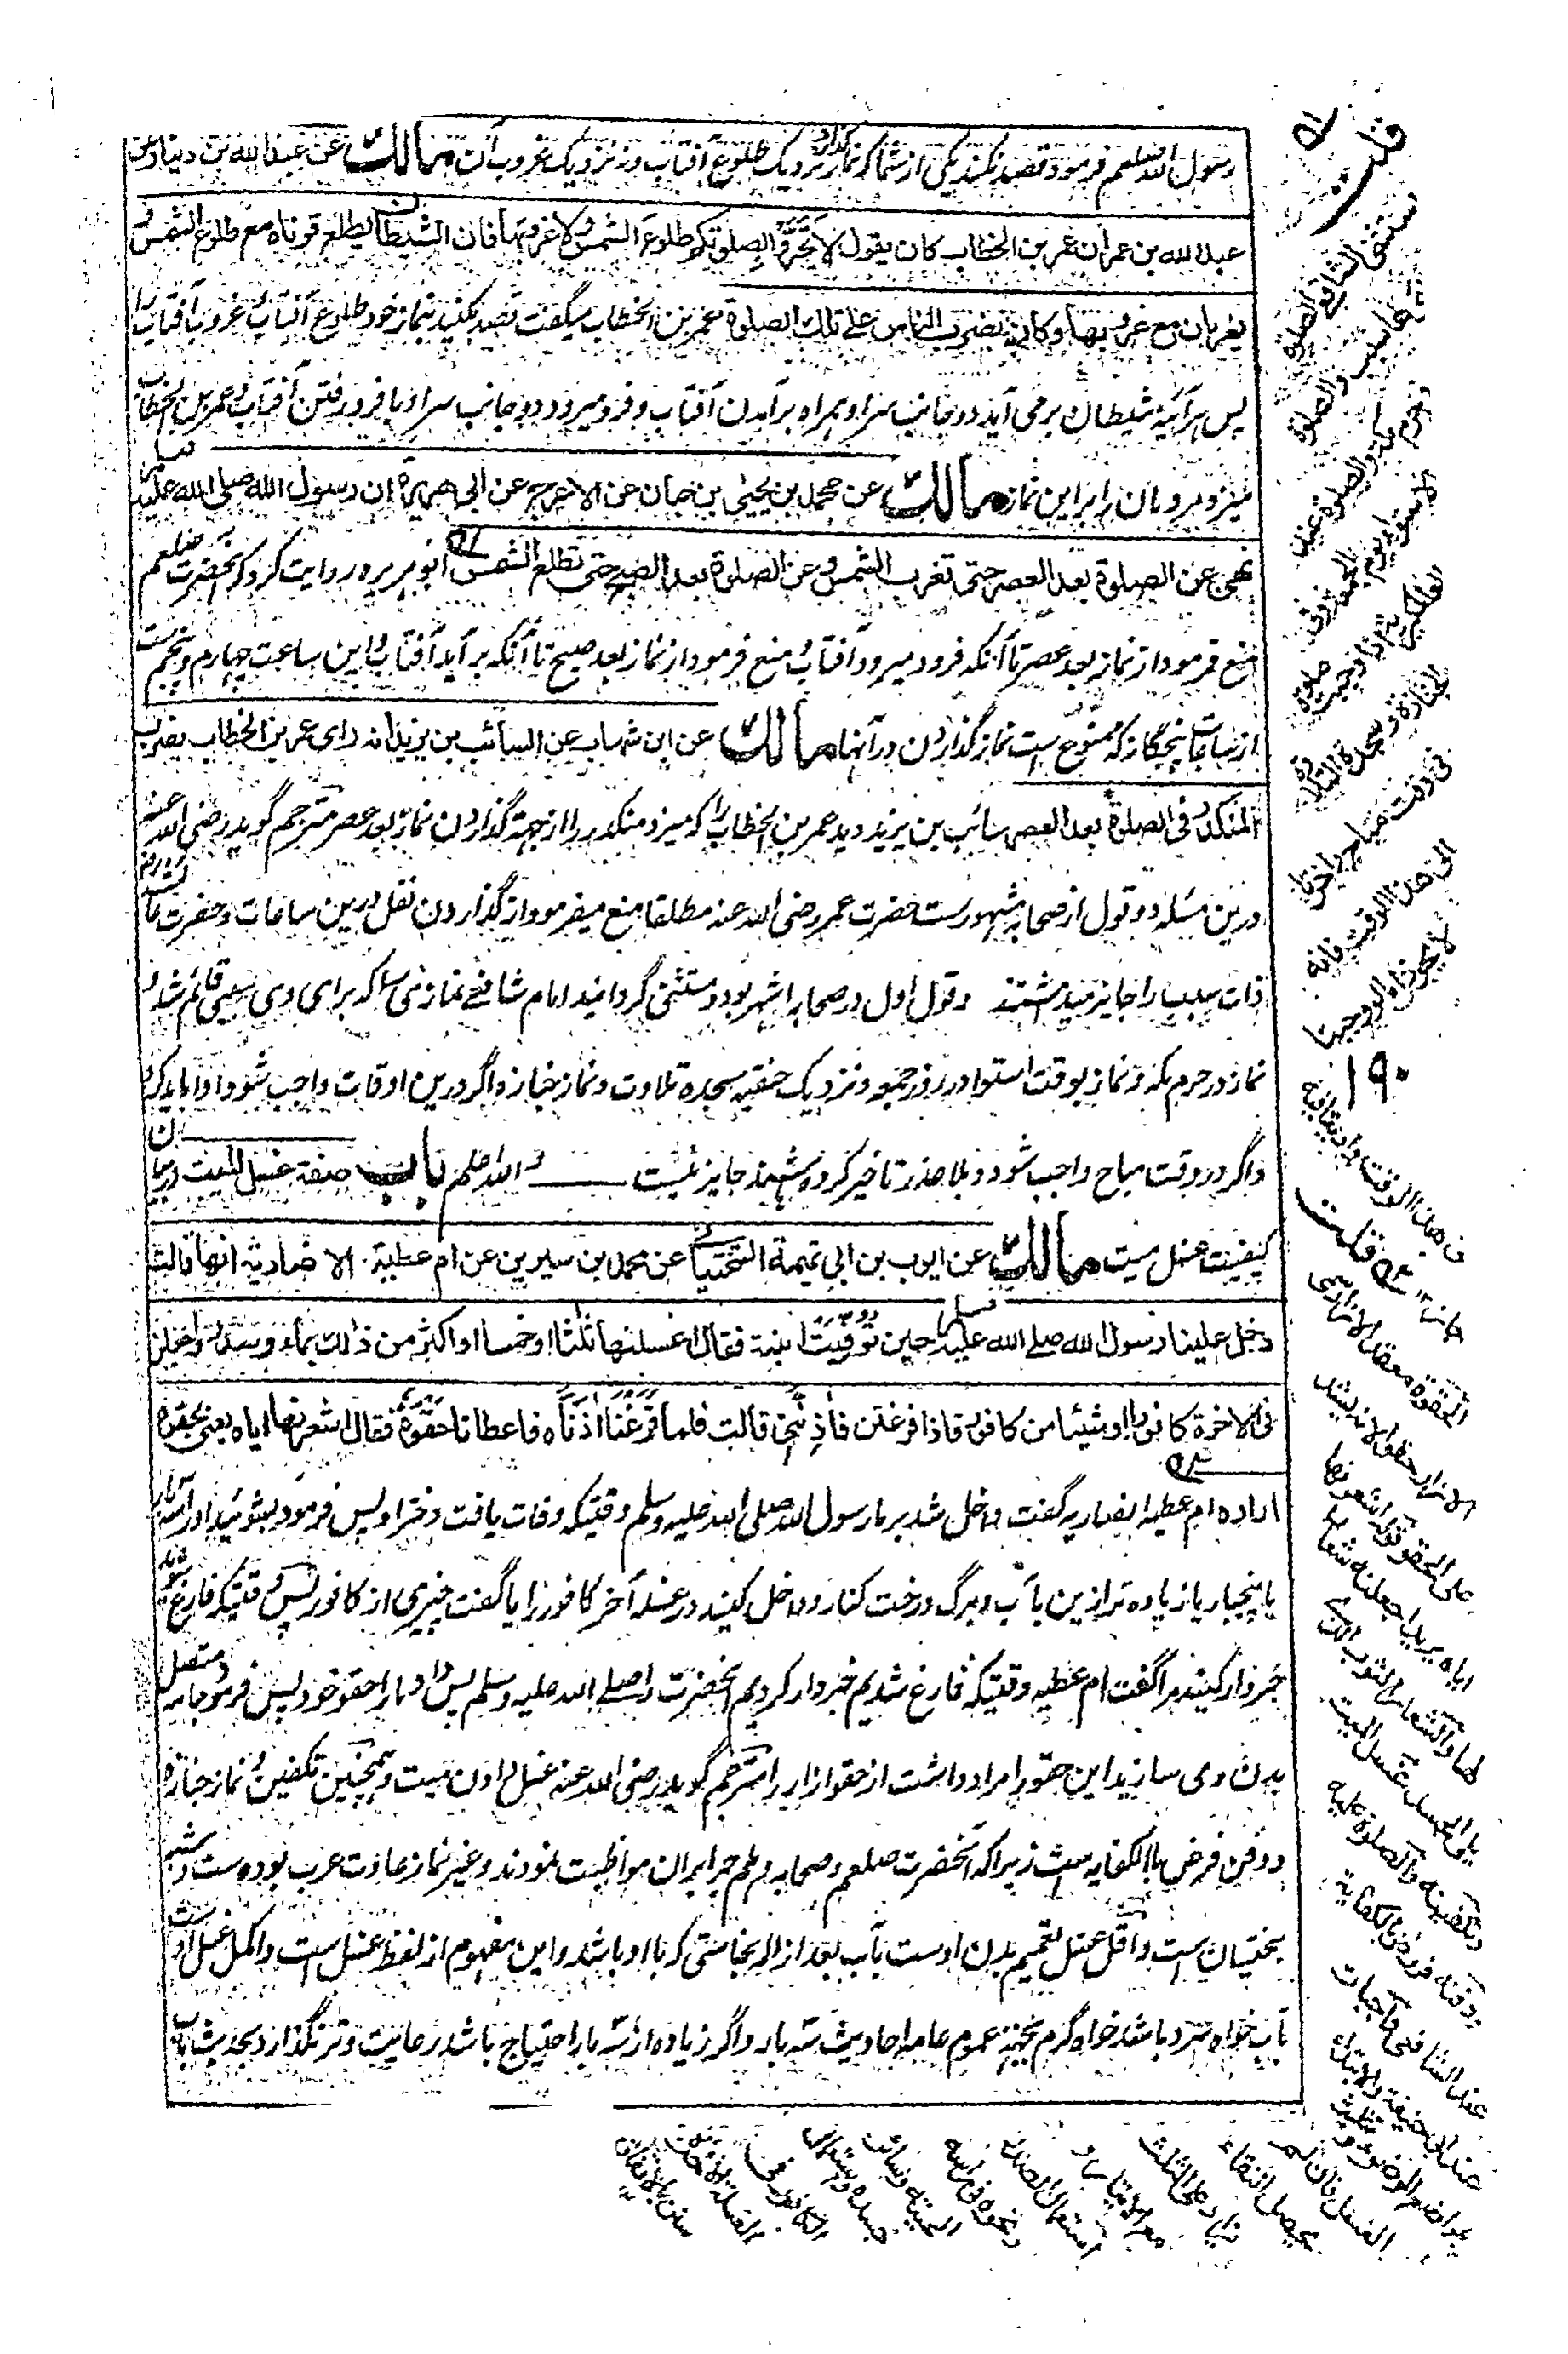 رسول الله صلعم فرمود قصد نکند یکی از شما که نماز گذارد نزدیک طلوع آفتاب و نه نزدیک غروب آن مالك عن عبد الله بن دینار عن
عبد الله بن عمر ان عمر بن الخطاب کان یقول لا تحروا بصلوتکم طلوع الشمس ولا غروبها فان الشیطان یطلع قرناه مع طلوع الشمس و
یغربان مع غروبها وکان یضرب الناس علی تلك الصلوة عمر بن الخطاب میگفت قصد مکنید بنماز خود طلوع آفتاب و غروب آفتاب را
پس هر آئینه شیطان برمی آید دو جانب سر او همراه برآمدن آفتاب و فرو میرود دو جانب سر او با فرو رفتن آفتاب و عمر بن الخطاب
میزد مردمان را بر این نماز مالك عن محمد بن یحیی بن حبان عن الاعرج عن ابی هریرة ان رسول الله صلی الله علیه وسلم
نهی عن الصلوة بعد العصر حتی تغرب الشمس وعن الصلوة بعد الصبح حتی تطلع الشمس ابو هریره روایت کرد که آنحضرت صلعم
منع فرمود از نماز بعد عصر تا آنکه فرو میرود آفتاب و منع فرمود از نماز بعد صبح تا آنکه برآید آفتاب و این ساعت چهارم و پنجم ست
از ساعات پنجگانه که ممنوع است نماز گذاردن در آنها مالك عن ابن شهاب عن السائب بن یزید انه رای عمر بن الخطاب یضرب
المنکدر فی الصلوة بعد العصر سائب بن یزید دید عمر بن الخطاب را که میزد منکدر را از جهة گذاردن نماز بعد عصر مترجم گوید رضی الله عنه
درین مسئله دو قول از صحابه مشهور ست حضرت عمر رضی الله عنه مطلقا منع میفرمود از گذاردن نفل درین ساعات و حضرت عائشه
ذات سبب را جایز میداشتند و قول اول در صحابه اشهر بود و مستثنی گردانید امام شافعی نمازی را که برای وی سببی قائم شد و
نماز در حرم مکه و نماز بوقت استوا در روز جمعه و نزدیک حنفیه سجده تلاوت و نماز جنازه اگر درین اوقات واجب شود ادا باید کرد
و اگر در وقت مباح واجب شود و بلا عذر تاخیر کرده شد جایز نیست والله اعلم باب صفة غسل المیت در بیان
کیفیت غسل میت مالك عن ایوب بن ابی تمیمة السختیانی عن محمد بن سیرین عن ام عطیة الانصاریة انها قالت
دخل علینا رسول الله صلی الله علیه وسلم حین توفیت ابنته فقال اغسلنها ثلثا او خمسا او اکثر من ذلك بماء وسدر واجعلن
فی الاخرة کافورا او شیئا من کافور فاذا فرغتن فاذننی قالت فلما فرغنا اذناه فاعطانا حقوه فقال اشعرنها ایاه یعنی بحقوه
ازاره ام عطیه انصاریه گفت داخل شد بر ما رسول الله صلی الله علیه وسلم وقتیکه وفات یافت دختر او پس فرمود بشوئید او را سه بار
یا پنجبار یا زیاده تر ازین بآب و برگ درخت کنار و داخل کنید در غسل آخر کافور را یا گفت چیزی از کافور پس وقتیکه فارغ شوید
خبردار کنید مرا گفت ام عطیه وقتیکه فارغ شدیم خبردار کردیم آنحضرت را صلی الله علیه وسلم پس داد ما را حقو خود پس فرمود جامه متصل
بدن وی سازید این حقو را مراد داشت از حقو ازار را مترجم گوید رضی الله عنه غسل دادن میت و همچنین تکفین و نماز جنازه
و دفن فرض بالکفایه است زیرا که آنحضرت صلعم و صحابه و هلم جرا بران مواظبت نمودند و غیر نماز عادت عرب بوده ست و
بختیان است و اقل غسل تعمیم بدن اوست بآب بعد ازاله نجاستی که با او باشد و این مفهوم از لفظ غسل است و اکمل غسل او
بآب خواه سرد باشد خواه گرم بجهة عموم عامه احادیث سه بار و اگر زیاده از سه بار احتیاج باشد رعایت وتر نگذارد بحدیث باب
قلت
ستثنی الشافعی الصلوة
لها سبب والصلوة
حرم مکة والصلوة عند
استواء یوم الجمعة وقت
الجنازة وسجدة التلاوة
الی هذا الوقت فانه
لا یجوز
۱۹۰
قلت
الحقوة معقد الازار
علی الحقو قوله اشعرنها
ایاه یرید اجعلنه شعارا
لها والشعار الثوب الذی
یلی الجسد غسل المیت
وتکفینه والصلوة علیه
ودفنه فروض بالکفایة
عند الشافعی